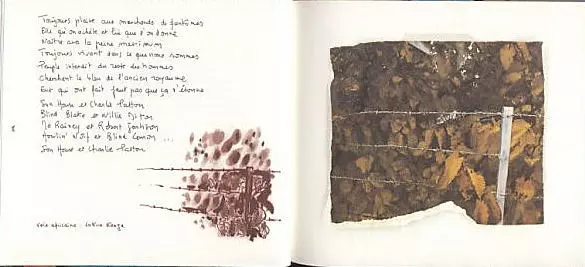 Toujours plaire aux marchands de fantômes
Elle qu'on achète et lui que l'on donne
Naître avec la peine maximum
Toujours vivant dans ce que nous sommes
Peuple interdit du reste des hommes
Cherchent le bleu de l'ancien royaume
Eux qui ont fait faut pas que ça t'étonne
Son House et Charlie Patton
Blind Blake et Willie Dixon
Ma Rainey et Robert Johnson
Howlin' Wolf et Blind Lemon ...
Son House et Charlie Patton
voix africaine :